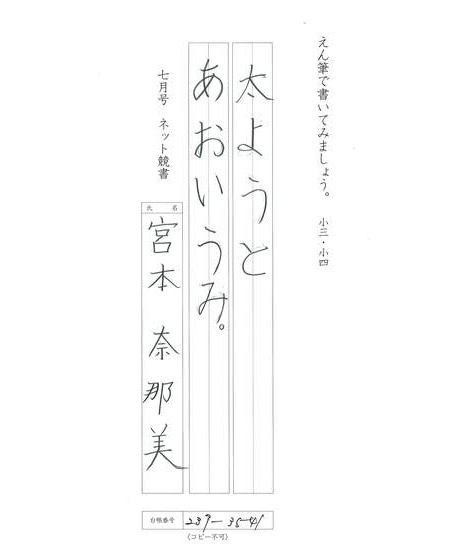 えん筆で書いてみましょう。　小三・小四
太ようと
あおいうみ。
七月号　ネット競書
氏　名
宮本　奈那美
台帳番号
237－35-41
(コピー不可)